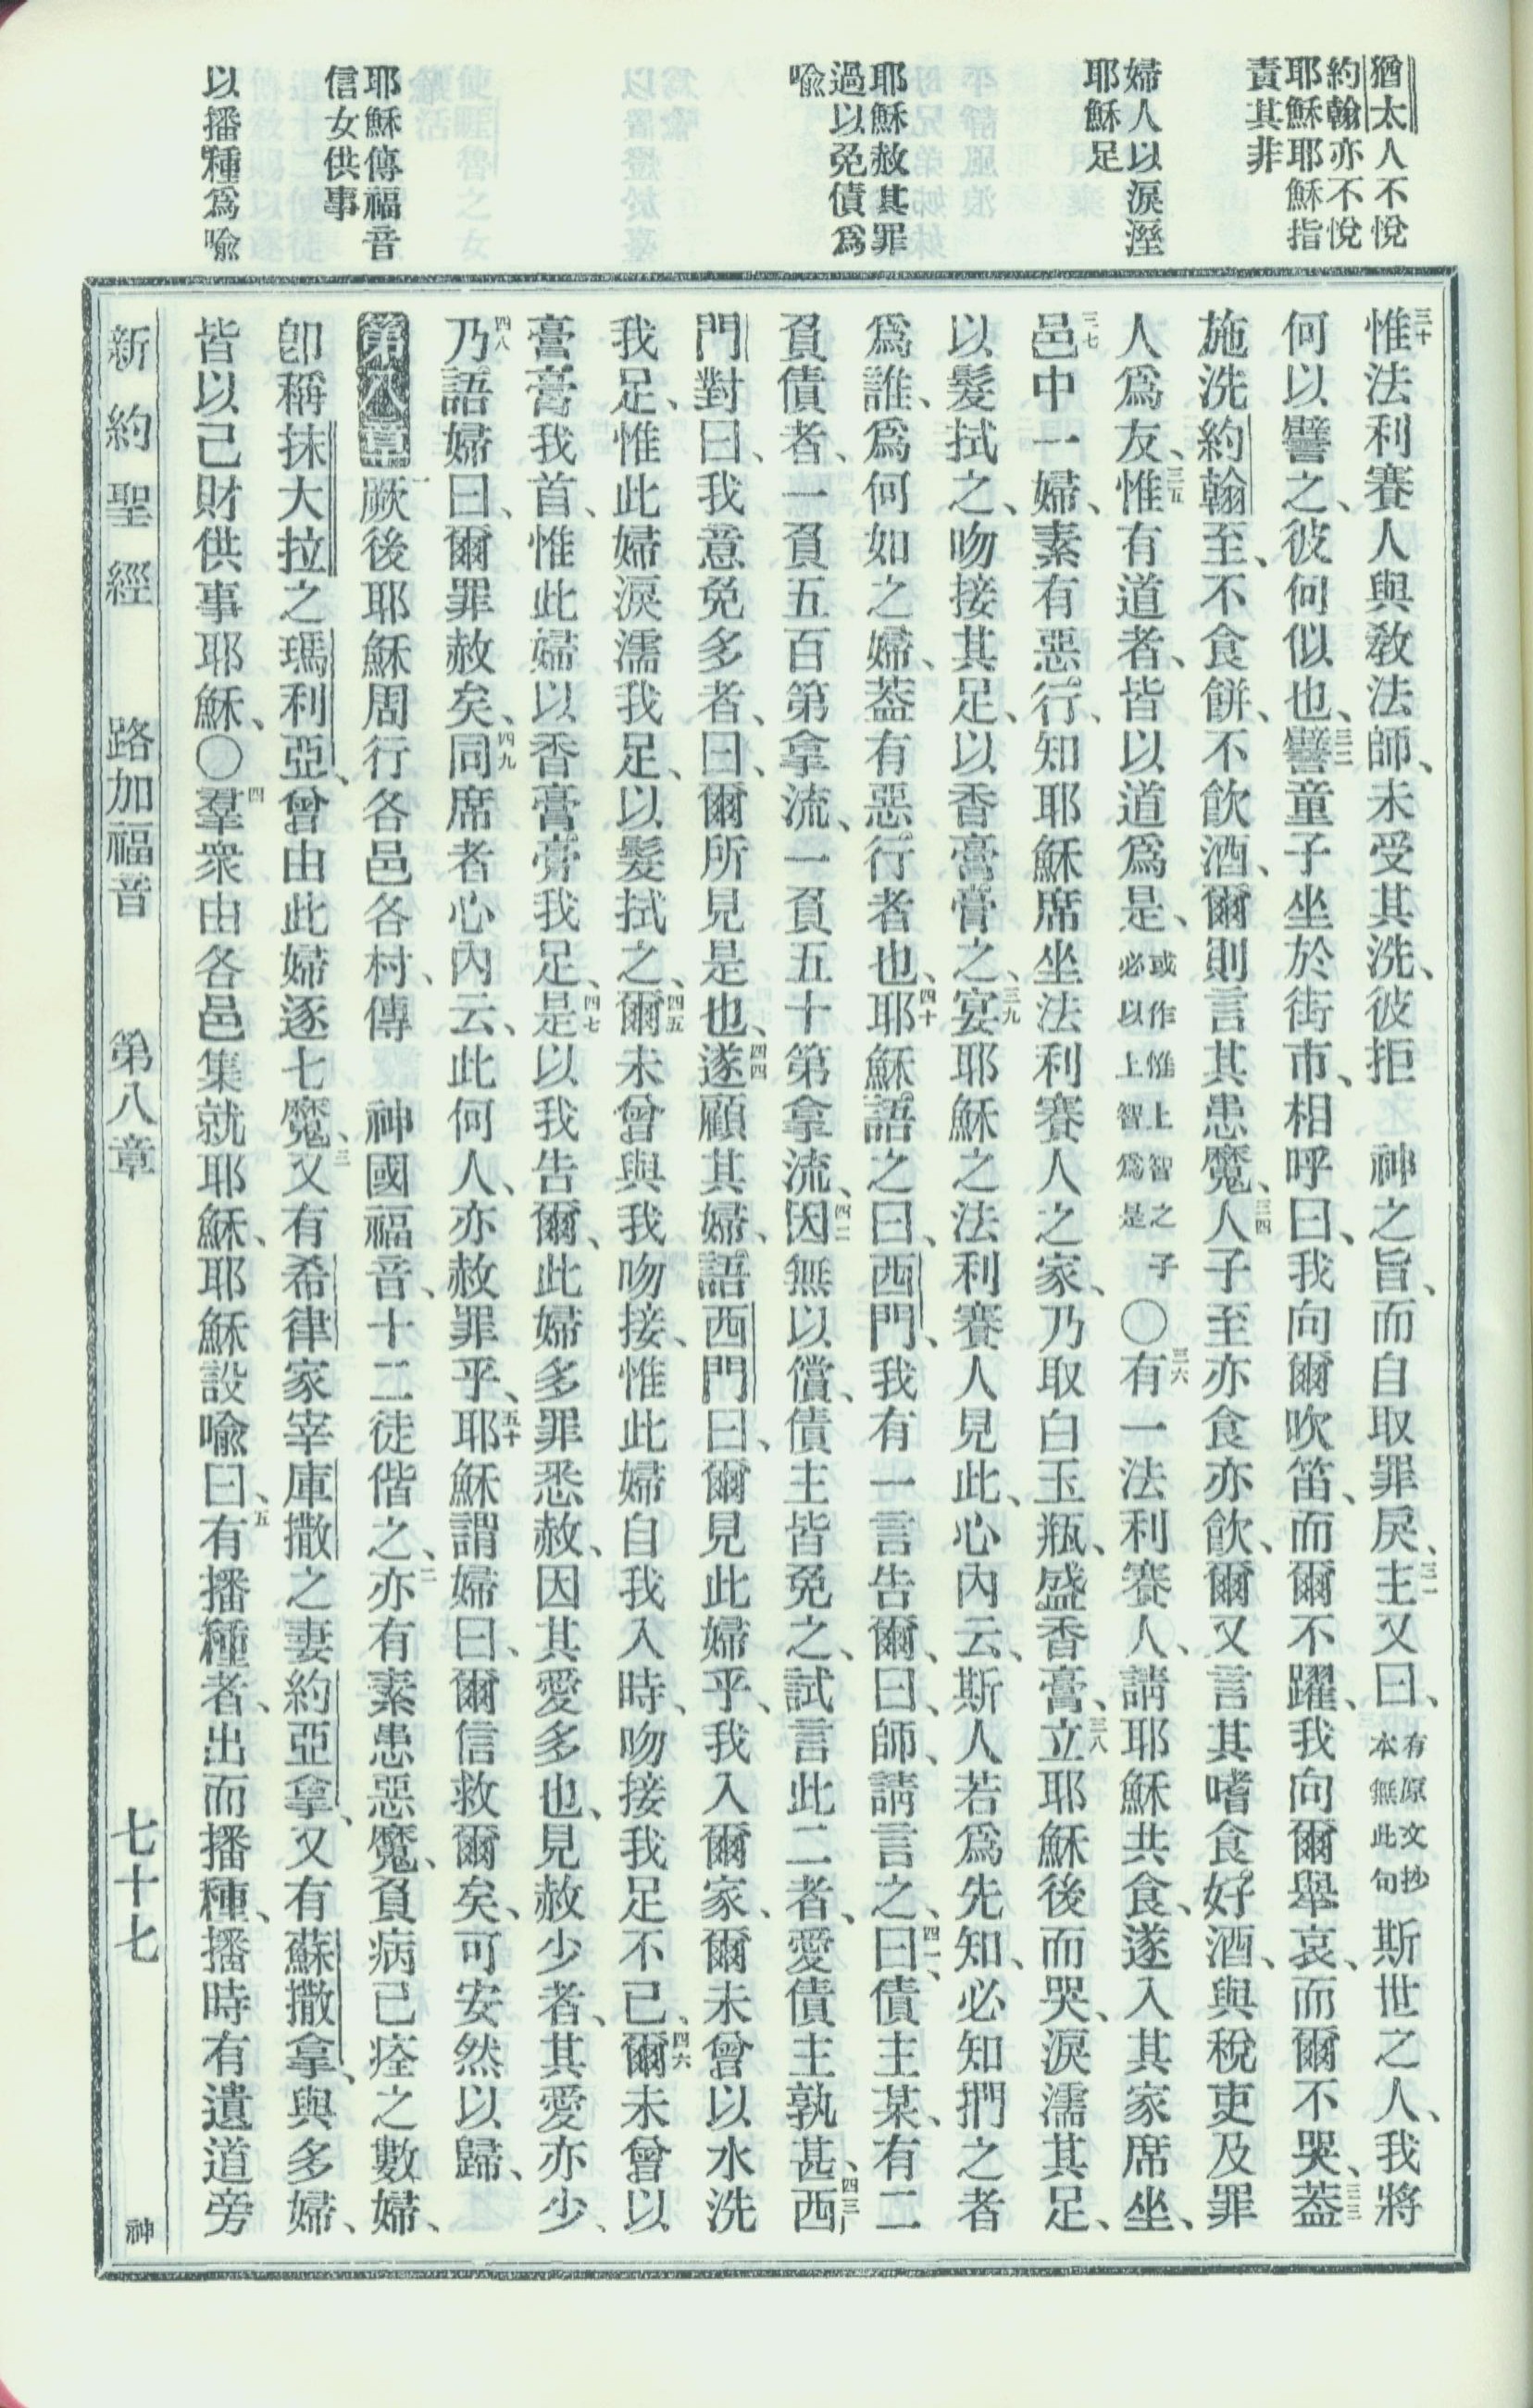 猶太人不悅
約翰亦不悅
耶穌耶穌指
責其非
婦人以淚溼
耶穌足
耶穌赦其罪
過以免債爲
喩
耶穌傳福音
信女供事
以播種爲喩
三十惟法利賽人與敎法師、未受其洗、彼拒　神之旨、而自取罪戾、三一主又曰、有原文抄本無此句斯世之人、我將
何以譬之、彼何似也、三二譬童子坐於街市、相呼曰、我向爾吹笛、而爾不躍、我向爾舉哀、而爾不哭、三三蓋
施洗約翰至、不食餅、不飮酒、爾則言其患魔、三四人子至亦食亦飮、爾又言其嗜食好酒、與稅吏及罪
人爲友、三五惟有道者、皆以道爲是、或作惟上智之子必以上智爲是〇三六有一法利賽人、請耶穌共食、遂入其家席坐、
三七邑中一婦、素有惡行、知耶穌席坐法利賽人之家、乃取白玉瓶、盛香膏、三八立耶穌後而哭、淚濡其足、
以髮拭之、吻接其足、以香膏膏之、三九宴耶穌之法利賽人見此、心內云、斯人若爲先知、必知捫之者
爲誰、爲何如之婦、蓋有惡行者也、四十耶穌語之曰、西門、我有一言告爾、曰、師、請言之、四一曰、債主某、有二
負債者、一負五百第拿流、一負五十第拿流、四二因無以償、債主皆免之、試言此二者、愛債主孰甚、四三西
門對曰、我意免多者、曰、爾所見是也、四四遂顧其婦、語西門曰、爾見此婦乎、我入爾家、爾未曾以水洗
我足、惟此婦淚濡我足、以髮拭之、四五爾未曾與我吻接、惟此婦自我入時、吻接我足不已、四六爾未曾以
膏膏我首、惟此婦以香膏膏我足、四七是以我告爾、此婦多罪悉赦、因其愛多也、見赦少者、其愛亦少、
四八乃語婦曰、爾罪赦矣、四九同席者心內云、此何人、亦赦罪乎、五十耶穌謂婦曰、爾信救爾矣、可安然以歸、
第八章一厥後耶穌周行各邑各村、傳　神國福音、十二徒偕之、二亦有素患惡魔、負病已痊之數婦、
卽稱抹大拉之瑪利亞、曾由此婦逐七魔、三又有希律家宰庫撒之妻約亞拿、又有蘇撒拿、與多婦、
皆以己財供事耶穌、〇四羣衆由各邑集就耶穌、耶穌設喩曰、五有播種者、出而播種、播時有遺道旁
新約聖經　路加福音　第八章　七十七　神